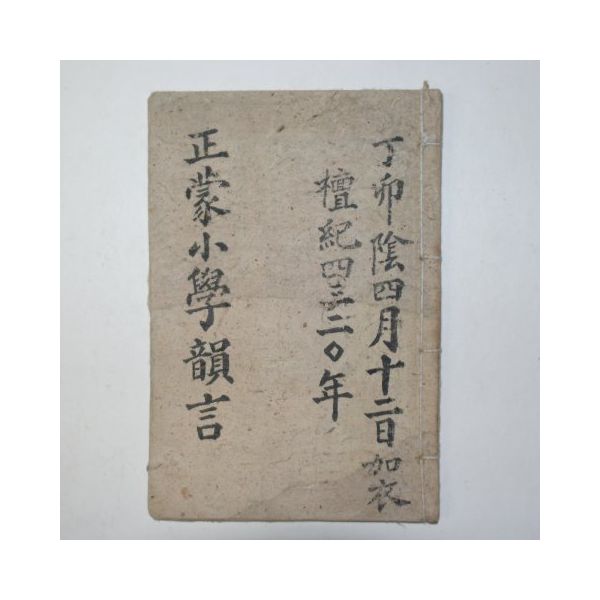 丁卯陰四月十二日加衣
檀紀四三二〇年
正蒙小學韻言